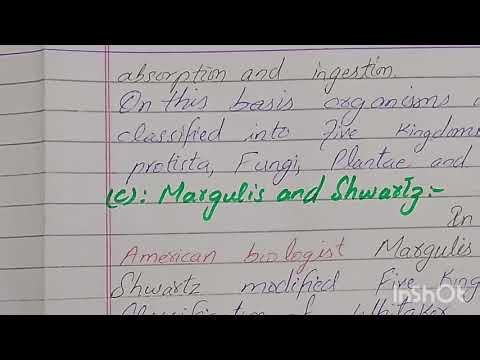 absorption and ingestion.
On this basis organisms
classified into Five Kingdoms
protista, Fungi, Plantae and
(c): Margulis and Shwartz:-
In
American biologist Margulis
Shwartz modified Five King
Classification of Whitaker
InShOt